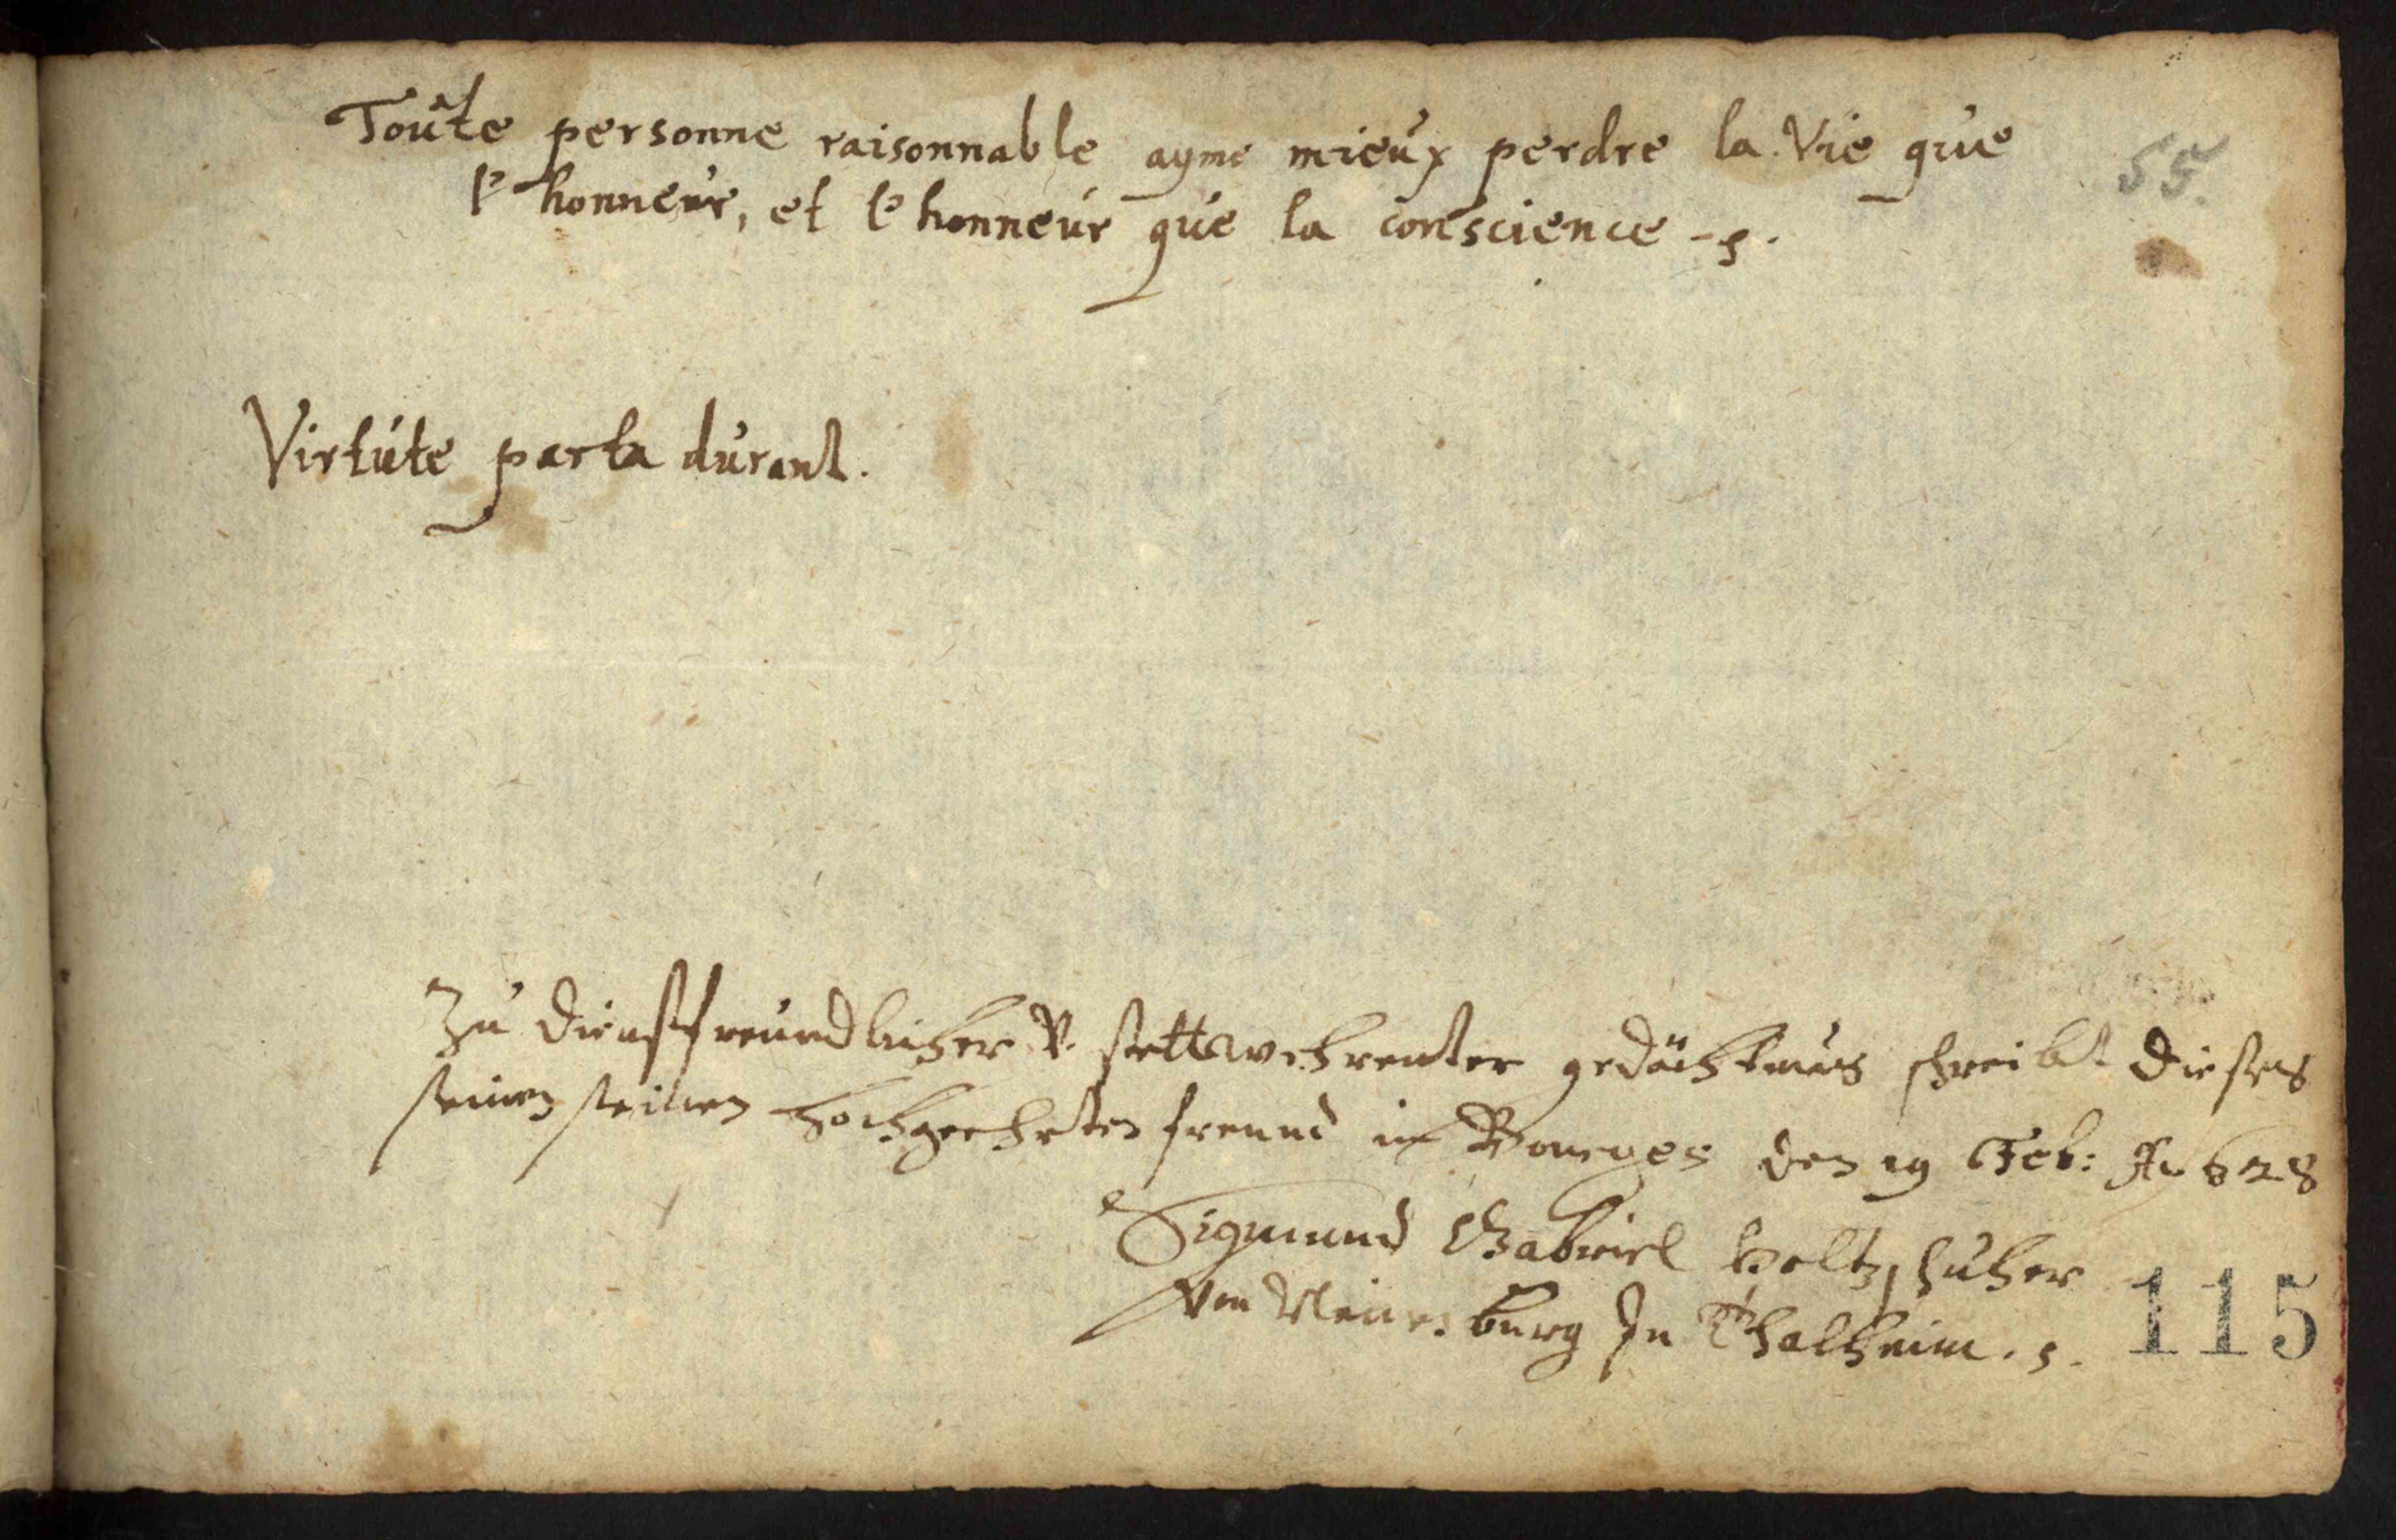 Toute personne raisonnable ayme mieux perdre la Vie que
l'honneur, et l'honneur que la conscience
55.
Virtute parta durant.
Zu dienstfreundlicher V. stettswehrenter gedächtnus schreibt dieses
seinem hochgeehrten freund in Bourges den 19 Feb: A° 628
Sigmund Gabriel Holtzschuher
Von Neuenburg In Thalheim.
115